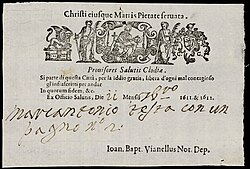 Christi eiusque Matris Pietate seruata.
Prouisores Salutis Clodiæ.
Si parte di questa Città, per la Iddio gratia, libera d'ogni mal contagioso
gl'infrascritti per andar
In quorum fidem, &c.
Ex Officio Salutis, Die ii Mensis 1611. & 1612.
Marcantonio Testa con un
pagno n.º
Ioan. Bapt. Vianellus Not. Dep.